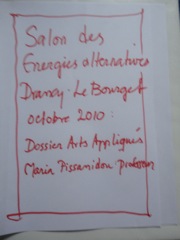 Salon des
Energies alternatives
Drancy-Le Bourget
octobre 2010:
Dossier Arts Appliqués
Maria Pissamidou professeur